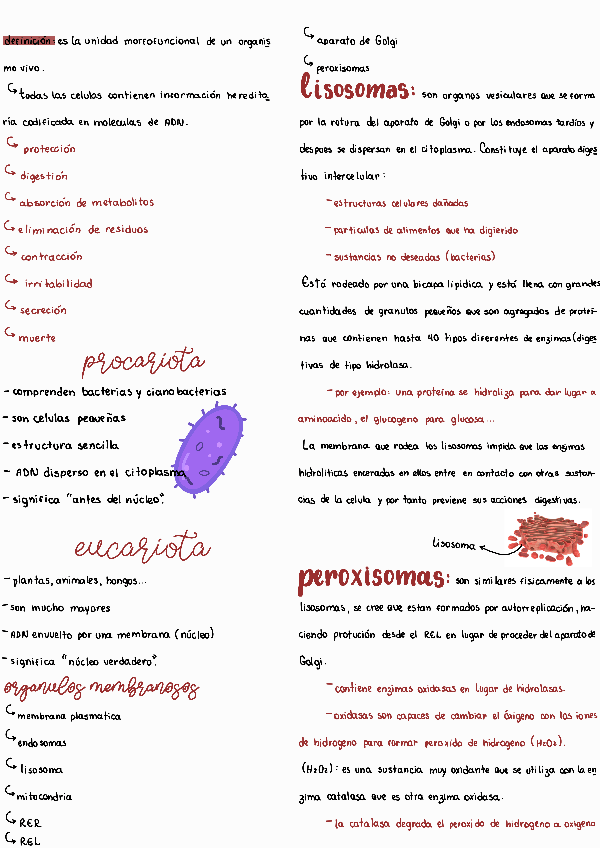 definición: es la unidad morfofuncional de un organis
mo vivo.
todas las celulas contienen información heredita
ria codificada en moleculas de ADN.
protección
digestión
absorción de metabolitos
eliminación de residuos
contracción
irritabilidad
secreción
muerte
procariota
- comprenden bacterias y cianobacterias
- son celulas pequeñas
- estructura sencilla
- ADN disperso en el citoplasma
- significa "antes del núcleo".
eucariota
- plantas, animales, hongos...
- son mucho mayores
- ADN envuelto por una membrana (núcleo)
- significa "núcleo verdadero".
organulos membranosos
membrana plasmatica
endosomas
lisosoma
mitocondria
RER
REL
aparato de Golgi
peroxisomas
lisosomas: son organos vesiculares que se forma
por la rotura del aparato de Golgi o por los endosomas tardíos y
despues se dispersan en el citoplasma. Constituye el aparato diges
tivo intercelular:
- estructuras celulares dañadas
- particulas de alimentos que ha digierido
- sustancias no deseadas (bacterias)
Está rodeado por una bicapa lipidica y está llena con grandes
cuantidades de granulos pequeños que son agregados de protei-
nas que contienen hasta 40 tipos diferentes de enzimas (diges
tivas de tipo hidrolasa.
- por ejemplo: una proteína se hidroliza para dar lugar a
aminoacido, el glucogeno para glucosa...
La membrana que rodea los lisosomas impida que las enzimas
hidroliticas encerradas en ellos entre en contacto con otras sustan-
cias de la celula y por tanto previene sus acciones digestivas.
lisosoma
peroxisomas: son similares fisicamente a los
lisosomas, se cree que estan formados por autorreplicación, ha-
ciendo protución desde el REL en lugar de proceder del aparato de
Golgi.
- contiene enzimas oxidasas en lugar de hidrolasas.
- oxidasas son capaces de cambiar el óxigeno con los iones
de hidrogeno para formar peroxido de hidrogeno (H2O2).
(H2O2): es una sustancia muy oxidante que se utiliza con la en
zima catalasa que es otra enzima oxidasa.
- la catalasa degrada el peroxido de hidrogeno a oxigeno